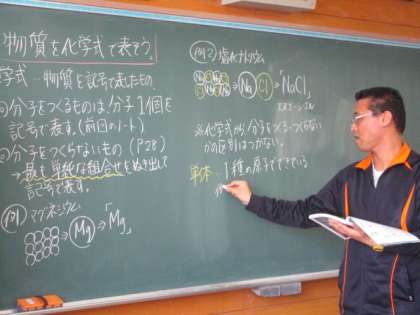 物質を化学式で表そう。
学式…物質を記号で表したもの。
分子をつくるものは分子1個を
記号で表す。(前回のノート)
分子をつくらないもの (P28)
→最も単純な組合せをぬき出して
記号で表す。
例1) マグネシウム
→Mg→「Mg」
例2) 塩化ナトリウム
→Na Cl→「NaCl」
エヌエーシーエル
※化学式から分子をつくる・つくらない
かの区別はつかない。
単体…1種の原子でできている